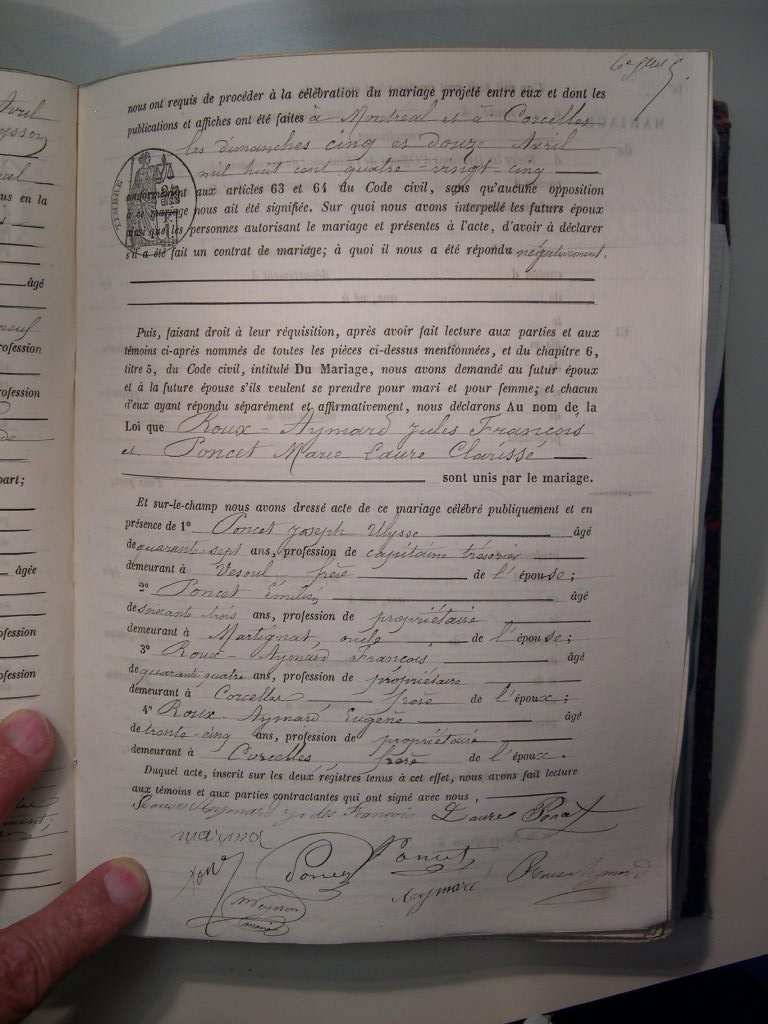 nous ont requis de procéder à la célébration du mariage projeté entre eux et dont les
publications et affiches ont été faites à Montréal et à Corcelles
les dimanches cinq et douze Avril
mil huit cent quatre-vingt-cinq
conformément aux articles 63 et 64 du Code civil, sans qu'aucune opposition
à ce mariage nous ait été signifiée. Sur quoi nous avons interpellé les futurs époux
ainsi que les personnes autorisant le mariage et présentes à l'acte, d'avoir à déclarer
s'il a été fait un contrat de mariage; à quoi il nous a été répondu négativement.
TIMBRE
Puis, faisant droit à leur réquisition, après avoir fait lecture aux parties et aux
témoins ci-après nommés de toutes les pièces ci-dessus mentionnées, et du chapitre 6,
titre 5, du Code civil, intitulé Du Mariage, nous avons demandé au futur époux
et à la future épouse s'ils veulent se prendre pour mari et pour femme; et chacun
d'eux ayant répondu séparément et affirmativement, nous déclarons Au nom de la
Loi que Roux-Aymard Jules François
et Poncet Marie Laure Clarisse
sont unis par le mariage.
Et sur-le-champ nous avons dressé acte de ce mariage célébré publiquement et en
présence de 1º Poncet Joseph Ulysse âgé
de quarante sept ans, profession de capitaine trésorier
demeurant à Vesoul frère de l'épouse;
2º Poncet Emilien âgé
de soixante trois ans, profession de propriétaire
demeurant à Martignat, oncle de l'épouse;
3º Roux-Aymard François âgé
de quarante quatre ans, profession de propriétaire
demeurant à Corcelles frère de l'époux;
4º Roux-Aymard Eugène âgé
de trente-cinq ans, profession de propriétaire
demeurant à Corcelles frère de l'époux.
Duquel acte, inscrit sur les deux registres tenus à cet effet, nous avons fait lecture
aux témoins et aux parties contractantes qui ont signé avec nous,
Roux Aymard Jules François Laure Poncet
Poncet Poncet
Aymard Roux Aymard